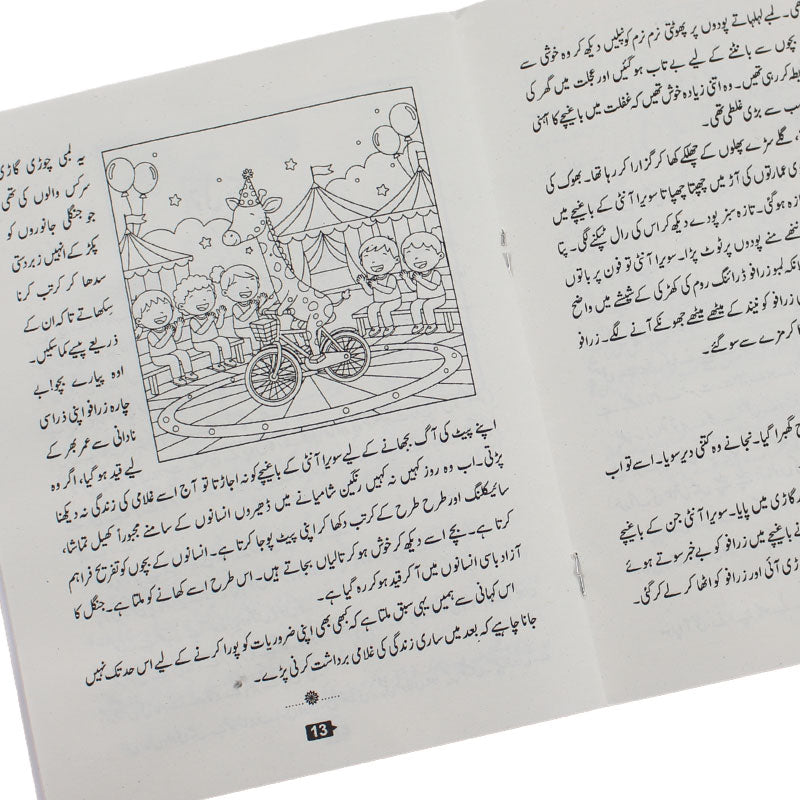 تھی۔ لمبے لہلہاتے پودوں پر پھوٹتی نرم نرم کونپلیں دیکھ کر وہ خوشی سے
بچوں سے بانٹنے کے لیے بے تاب ہو گئیں اور عجلت میں گھر کی
رابطہ کر رہی تھیں۔ وہ اتنی زیادہ خوش تھیں کہ غفلت میں باغیچے کا آہنی
سب سے بڑی غلطی تھی۔
گلے سڑے پھلوں کے چھلکے کھا کر گزارا کر رہا تھا۔ بھوک کی
عمارتوں کی آڑ میں چھپتا چھپاتا سویرا آنٹی کے باغیچے میں
ہو گئی۔ تازہ سبز پودے دیکھ کر اس کی رال ٹپکنے لگی۔ پتا
ننھے منے پودوں پر ٹوٹ پڑا۔ سویرا آنٹی تو فون پر باتوں
لمبو زرافو ڈرائنگ روم کی کھڑکی کے شیشے میں واضح
زرافو کو نیند کے میٹھے میٹھے جھونکے آنے لگے۔ زرافو
کر مزے سے سو گئے۔
گھبرا گیا۔ نجانے وہ کتنی دیر سویا۔ اسے تو اب
گاڑی میں پایا۔ سویرا آنٹی جن کے باغیچے
باغیچے میں زرافو کو بے خبر سوتے ہوئے
آئی اور زرافو کو اٹھا کر لے کر گئی۔
یہ لمبی چوڑی گاڑی
سرکس والوں کی تھی
جو جنگلی جانوروں کو
پکڑ کے انہیں زبردستی
سدھا کر کرتب کرنا
سکھاتے تاکہ ان کے
ذریعے پیسے کما سکیں۔
اوہ پیارے بچو! بے
چارہ زرافو اپنی ذرا سی
نادانی سے عمر بھر کے
لیے قید ہو گیا، اگر وہ
اپنے پیٹ کی آگ بجھانے کے لیے سویرا آنٹی کے باغیچے کو نہ اجاڑتا تو آج اسے غلامی کی زندگی نہ دیکھنا
پڑتی۔ اب وہ روز کہیں نہ کہیں رنگین شامیانے میں ڈھیروں انسانوں کے سامنے مجبوراً کھیل تماشا،
سائیکلنگ اور طرح طرح کے کرتب دکھا کر اپنی پیٹ پوجا کرتا ہے۔ انسانوں کے بچوں کو تفریح فراہم
کرتا ہے۔ بچے اسے دیکھ کر خوش ہو کر تالیاں بجاتے ہیں۔ اس طرح اسے کھانے کو ملتا ہے۔ جنگل کا
آزاد باسی انسانوں میں آ کر قید ہو کر رہ گیا ہے۔
اس کہانی سے ہمیں یہی سبق ملتا ہے کہ کبھی بھی اپنی ضروریات کو پورا کرنے کے لیے اس حد تک نہیں
جانا چاہیے کہ بعد میں ساری زندگی کی غلامی برداشت کرنی پڑے۔
13